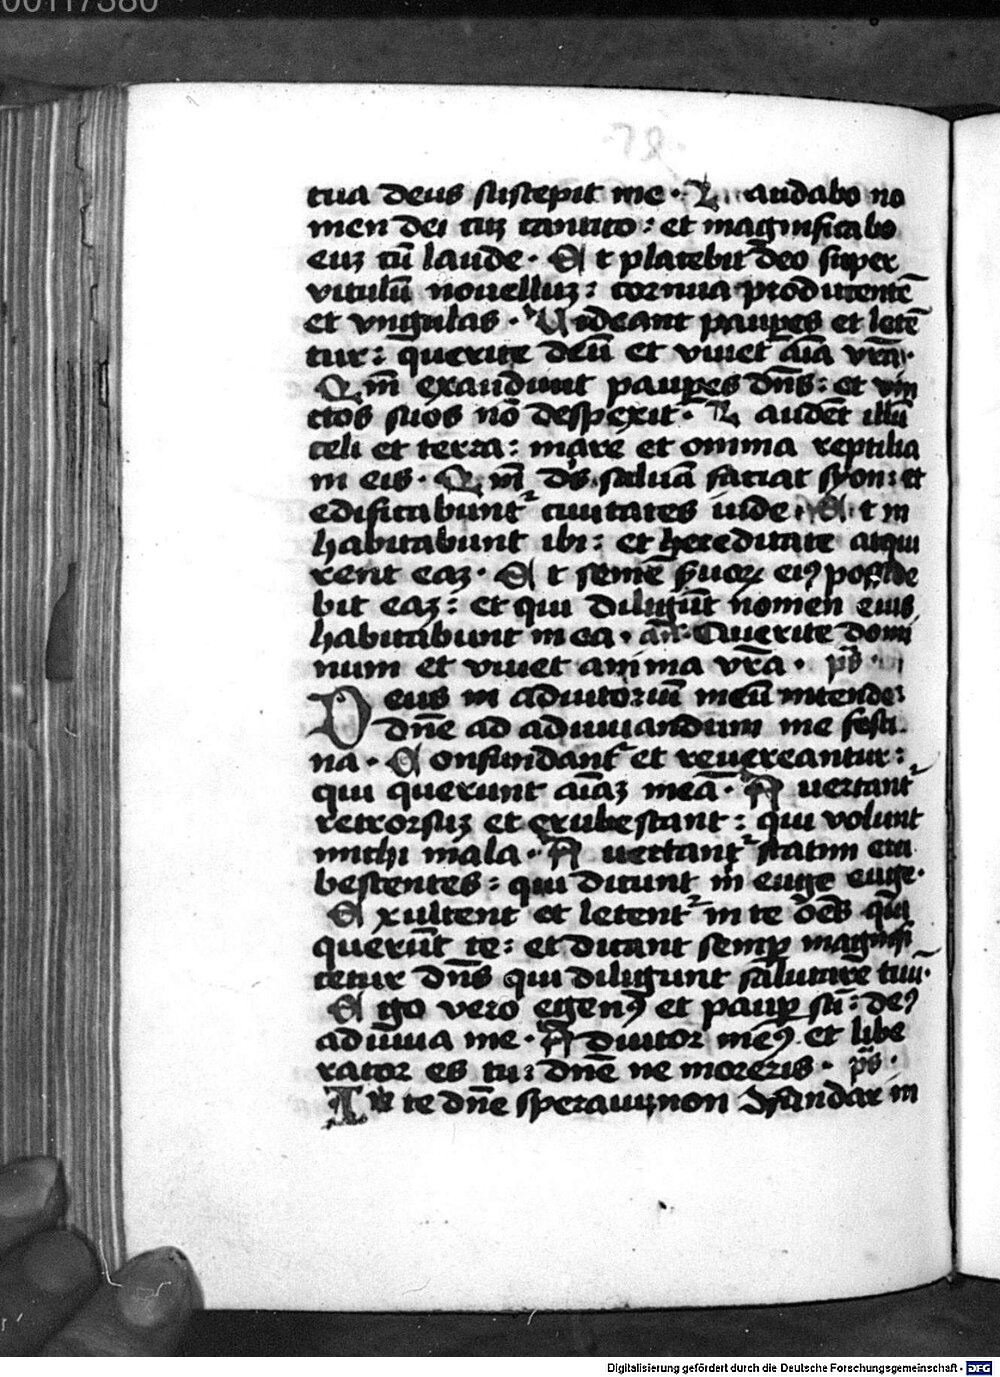 00117380
tua deus suscepit me · Laudabo no
men dei cuʒ cantico : et magnificabo
euʒ cū laude · Et placebit deo super
vitulū nouelluʒ : cornua producentē
et vngulas · Uideant paupes et letē
tur : querite deū et viuet aīa vrā ·
Qm̄ exaudiuit paupes dn̄s : et vin
ctos suos nō despexit · Laudēt illū
celi et terra : mare et omnia reptilia
in eis · Qm̄ ds saluā faciat syon : et
edificabunt᷑ ciuitates iude · Et in
habitabunt ibi : et hereditate acqui
rent eaʒ · Et semē ẜuoꝝ eiꝰ posside
bit eaʒ : et qui diligūt nomen eius
habitabunt in ea · an̄ · Querite domi
num et viuet anima vrā · ps̄ ·
Deus in adiutoriū meū intende :
dn̄e ad adiuuandum me festi
na · Confundant᷑ et reuereantur :
qui querunt aīaʒ meā · Auertant᷑
retrorsuʒ et erubescant : qui volunt
michi mala · Auertant᷑ statim eru
bescentes : qui dicunt m euge euge ·
Exultent et letent᷑ in te oēs qui
querūt te : et dicant semꝑ magnifi
cetur dn̄s qui diligunt salutare tuū ·
Ego vero egenꝰ et paupꝑ sū : deꝰ
adiuua me · Adiutor meꝰ et libe
rator es tu : dn̄e ne moreris · ps̄ ·
In te dn̄e speraui non ꝯfundar in
Digitalisierung gefördert durch die Deutsche Forschungsgemeinschaft - DFG